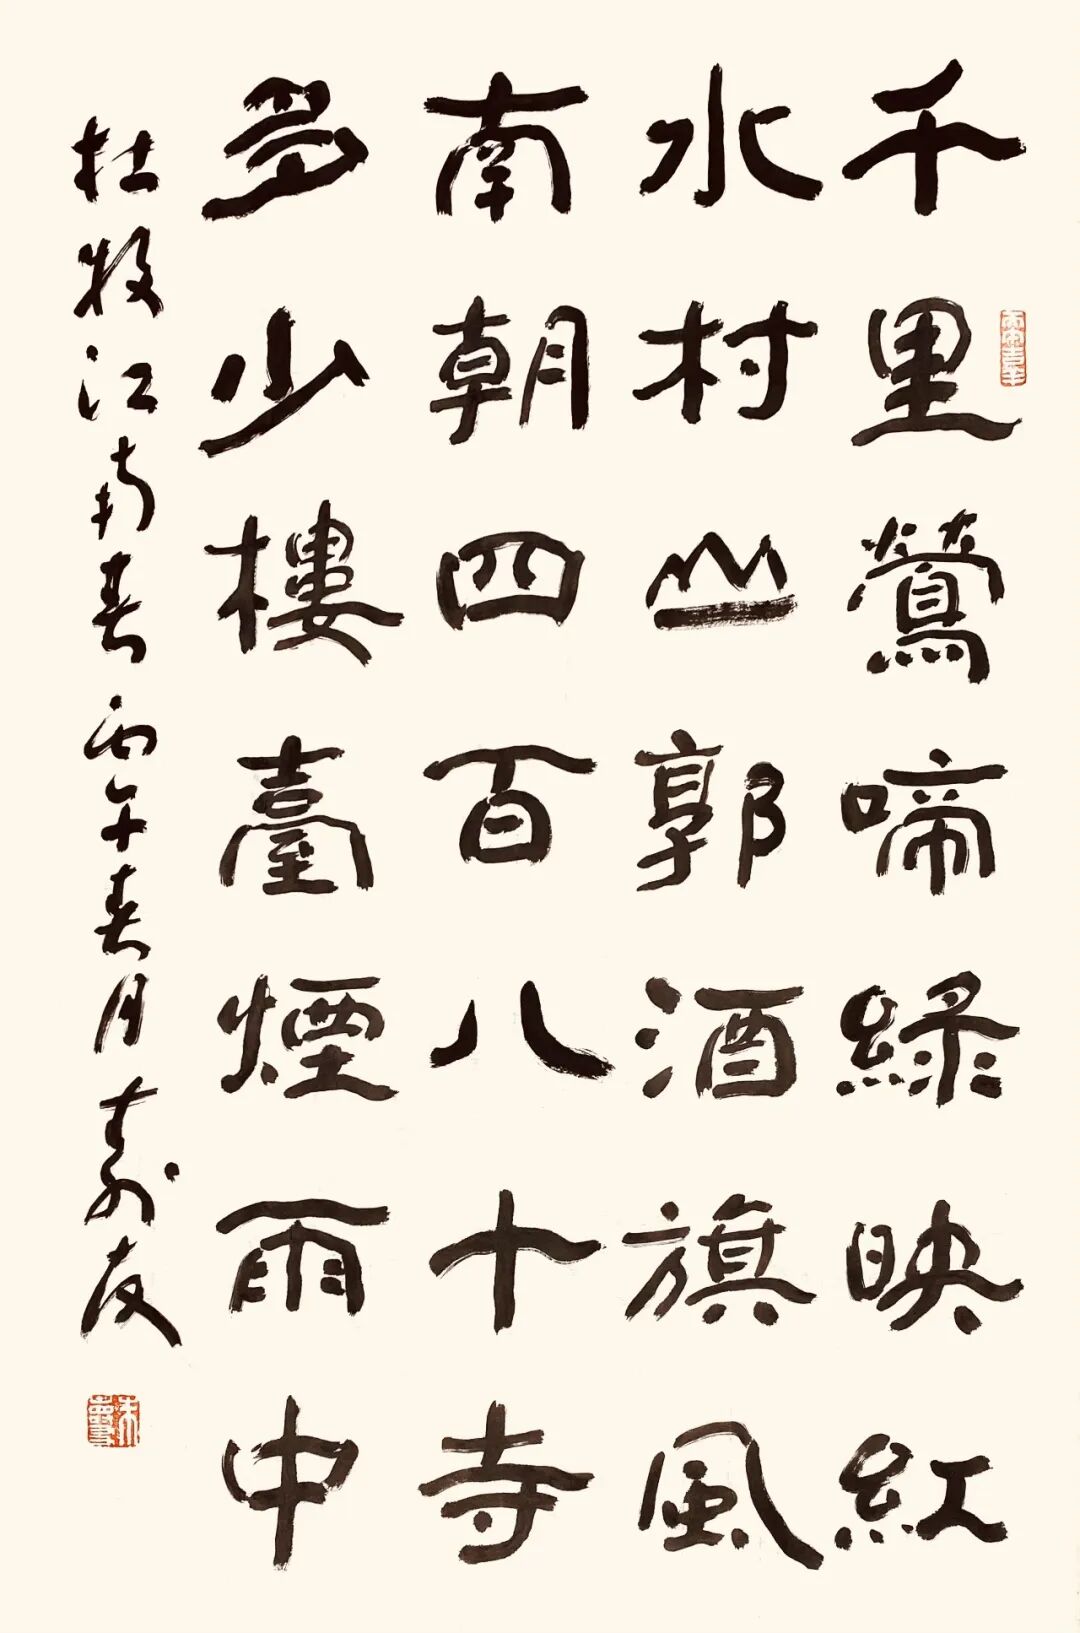 千里鶯啼緑映紅
水村山郭酒旗風
南朝四百八十寺
多少樓臺煙雨中
杜牧江南春 丙午春月 壽友